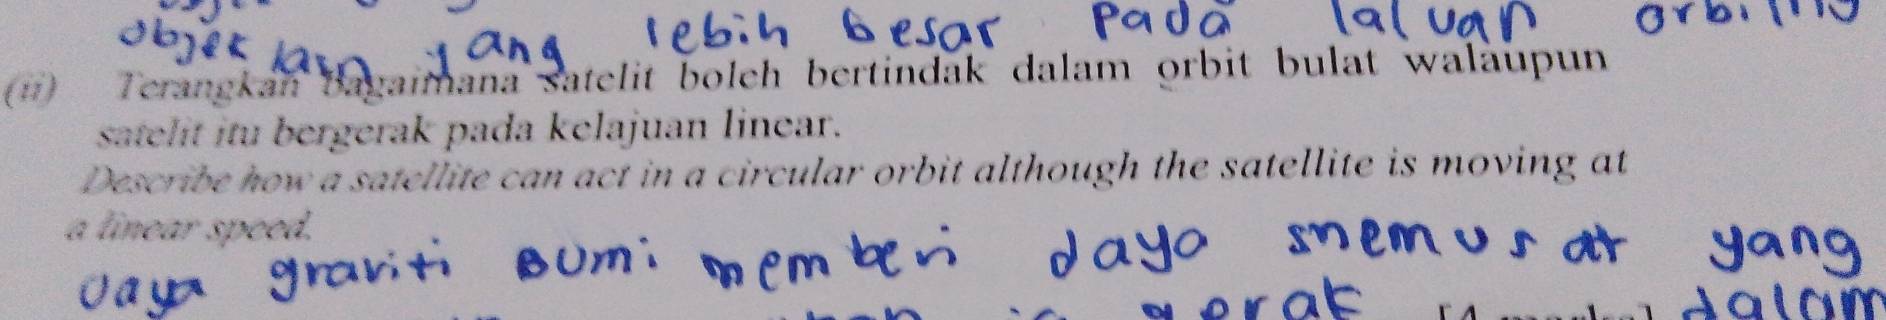 objek lain yang lebih besar pada laluan orbitnya
(ii) Terangkan bagaimana satelit boleh bertindak dalam orbit bulat walaupun
satelit itu bergerak pada kelajuan linear.
Describe how a satellite can act in a circular orbit although the satellite is moving at
a linear speed.
Daya graviti Bumi memberi daya memusat yang
gerak dalam